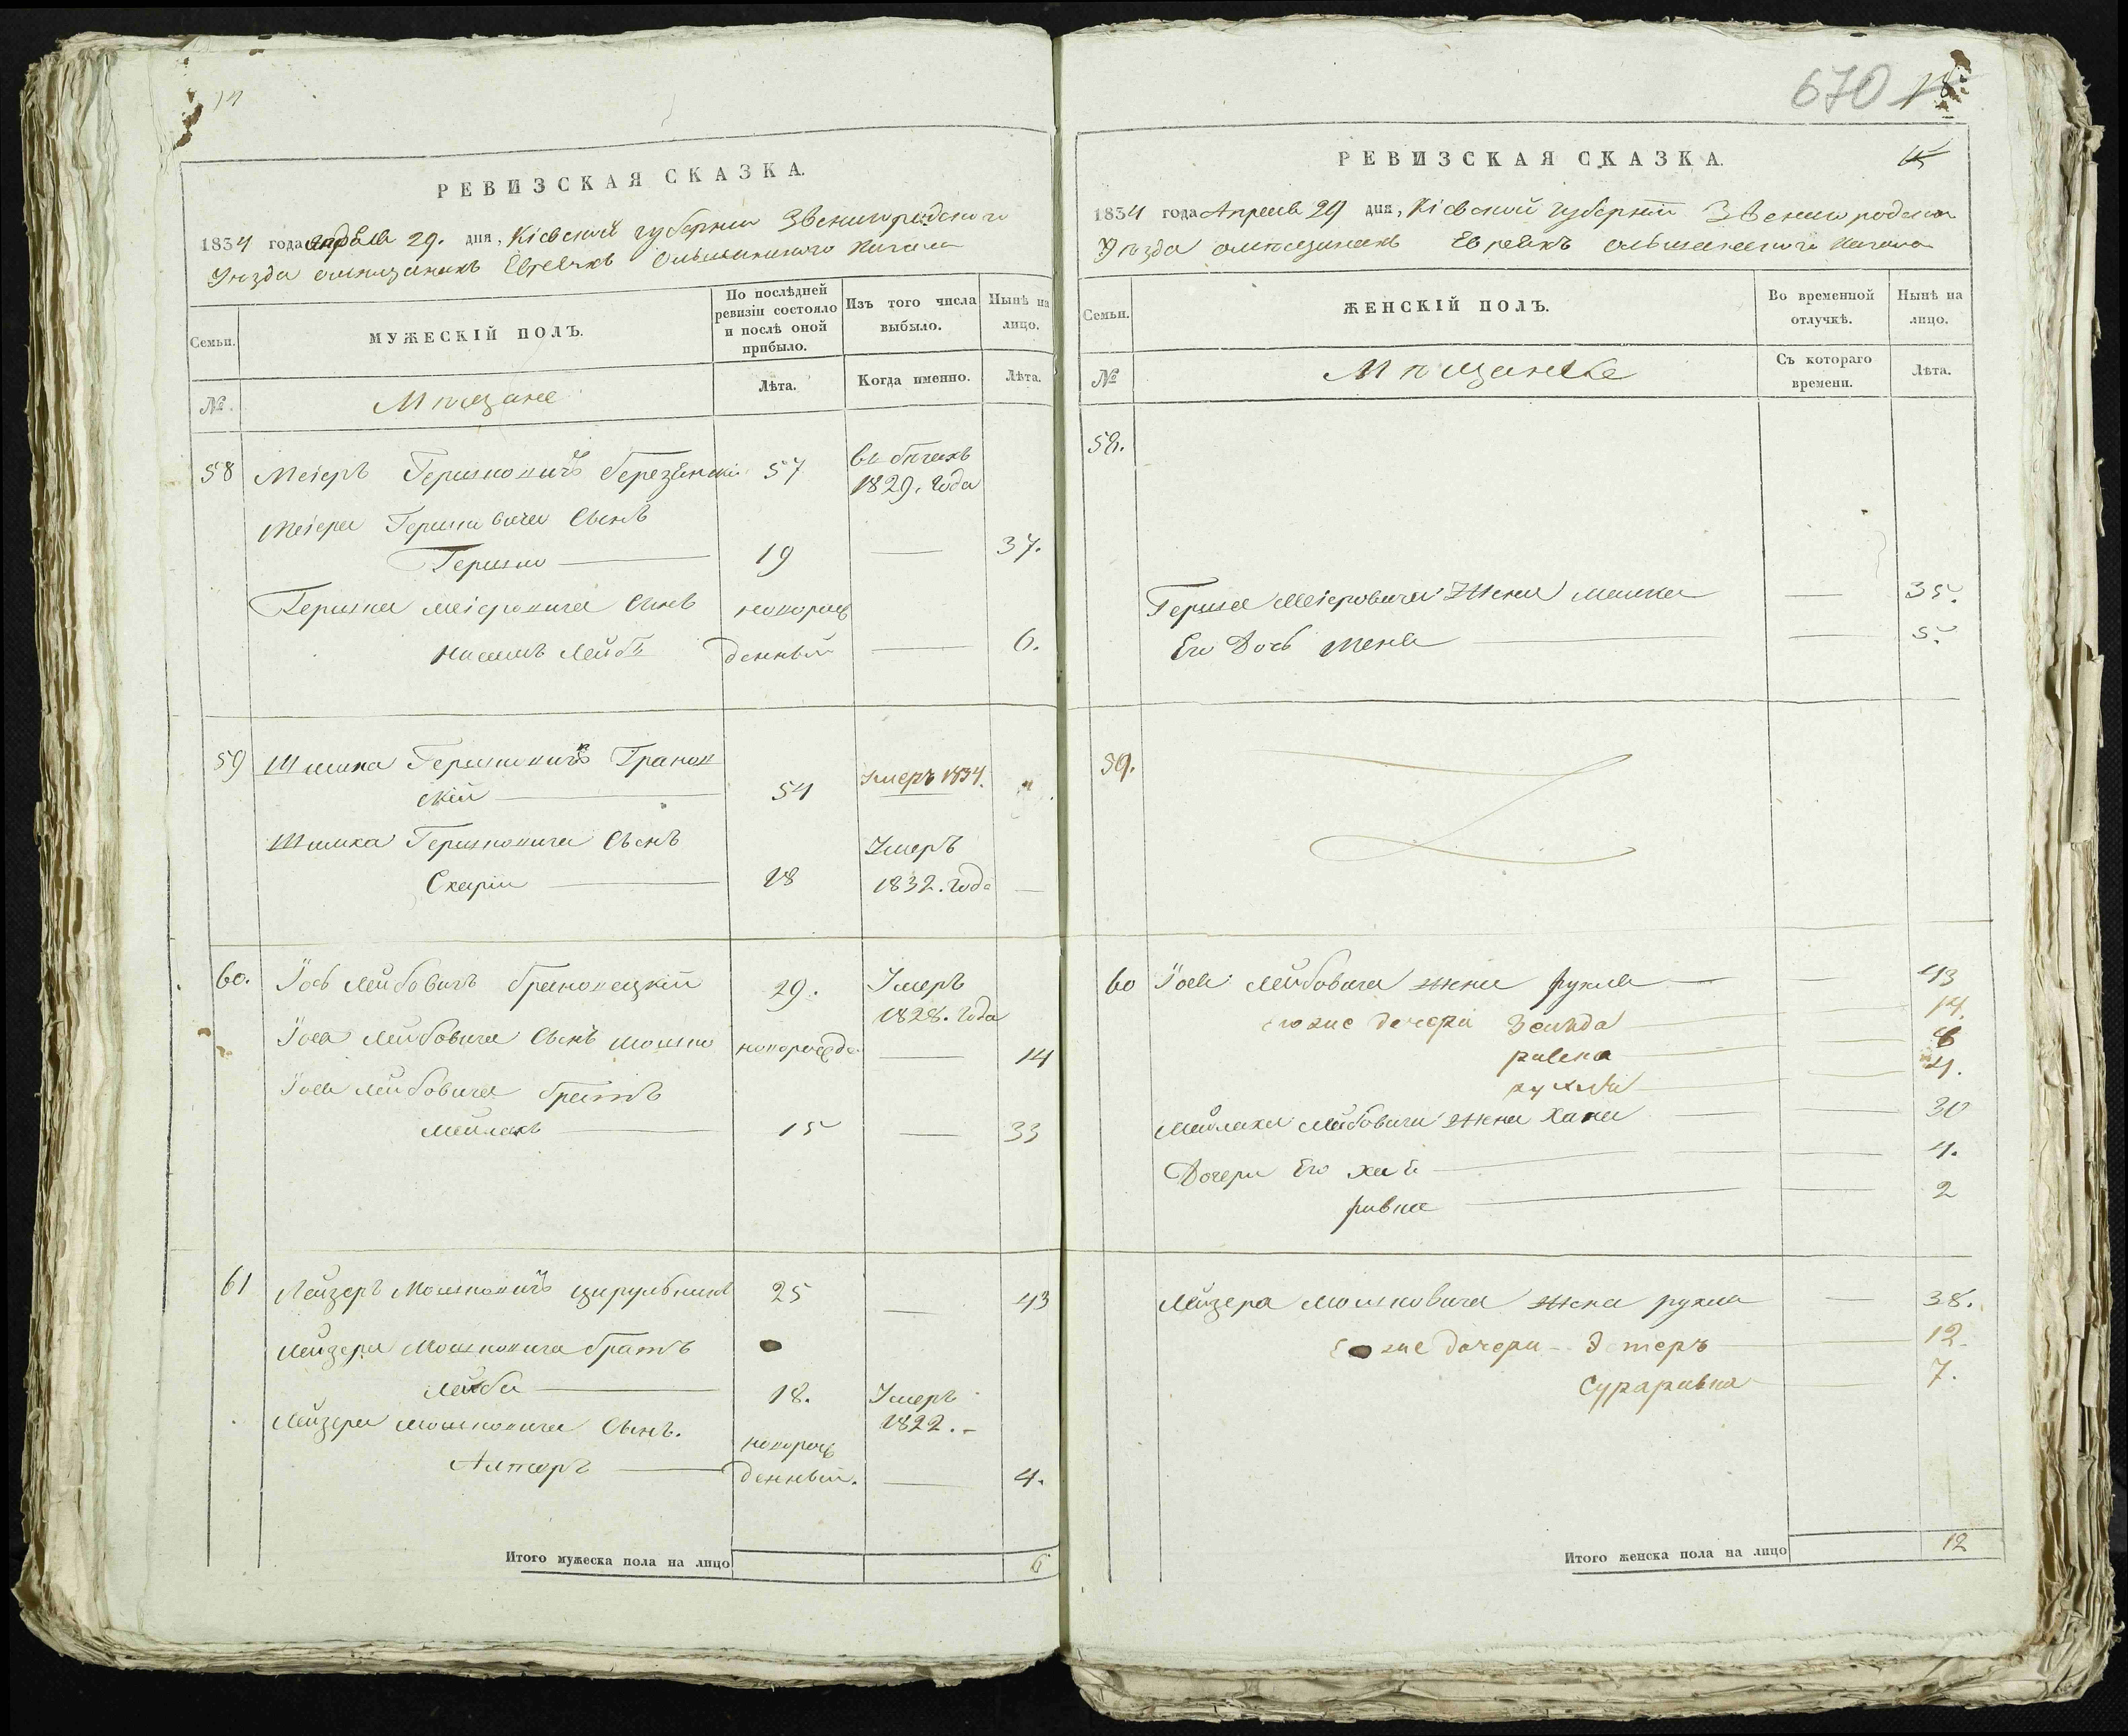 14
РЕВИЗСКАЯ СКАЗКА.
1834 года апреля 29. дня, Кіевской губерніи Звенигородского
Уезда о мещанахъ Евреяхъ Ольшанского Кагала
Семьи.
МУЖЕСКІЙ ПОЛЪ.
По послѣдней ревизіи состояло и послѣ оной прибыло.
Изъ того числа выбыло.
Нынѣ на лицо.
№.
Мещане
Лѣта.
Когда именно.
Лѣта.
58 Меіеръ Гершковичъ Березинскій 57 въ бегахъ
1829. года
Меіера Гершковича Сынъ
Гершко 19 — 37.
Гершка Меіеровича Сынъ новорож
Лейбъ денный — 6.
59 Шмика Гершковичъ Гранов
скій 54 Умеръ 1834.
Шмика Гершковича Сынъ Умеръ
18 1832. года —
60. Іось Лейбовичъ 29. Умеръ
1828. года
Іося Лейбовича Сынъ Мошко новорожде — 14
Іося Лейбовича братъ
Мейлахъ 15 — 33
61 Лейзеръ Мошковичъ Цирульникъ 25 — 43
Лейзера Мошковича братъ
Лейба 18. Умеръ
1822.
Лейзера Мошковича Сынъ. новорож
Алтеръ денный. — 4.
Итого мужеска пола на лицо 6
670 18
15
РЕВИЗСКАЯ СКАЗКА.
1834 года Апреля 29 дня, Кіевской губерніи Звенигородского
Уезда о мещанахъ Евреяхъ Ольшанского Кагала
Семьи.
ЖЕНСКІЙ ПОЛЪ.
Во временной отлучкѣ.
Нынѣ на лицо.
№
Мещанки
Съ котораго времени.
Лѣта.
58.
Гершка Меіеровича Жена Малка — 35.
Его Дочь — 5.
59.
60 Іося Лейбовича жена Рухля — 43
его же дочери Зелда 14.
Ривка 8
4.
Мейлаха Лейбовича Жена Хана — 30
Дочери Его Хая — 4.
Ривка — 2
Лейзера Мошковича жена Рухля — 38.
его же дочери Эстеръ 12.
Сураривка 7.
Итого женска пола на лицо 12